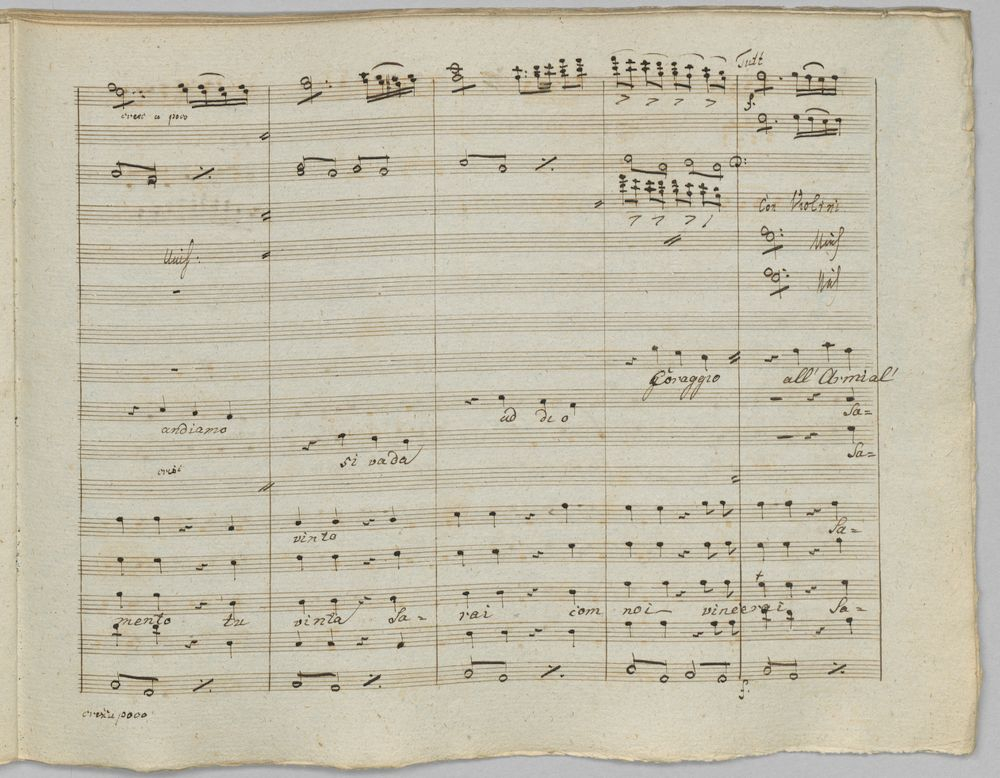 Tutt
cresc a poco
f.
Con Violini
Unis.
Unis
Unis
Coraggio all' Armi al'
andiamo ad dio Sa=
si vada Sa=
cresc
vinto Sa=
mento tu vinta Sa= rai com noi vincerai Sa=
f.
cresc a poco